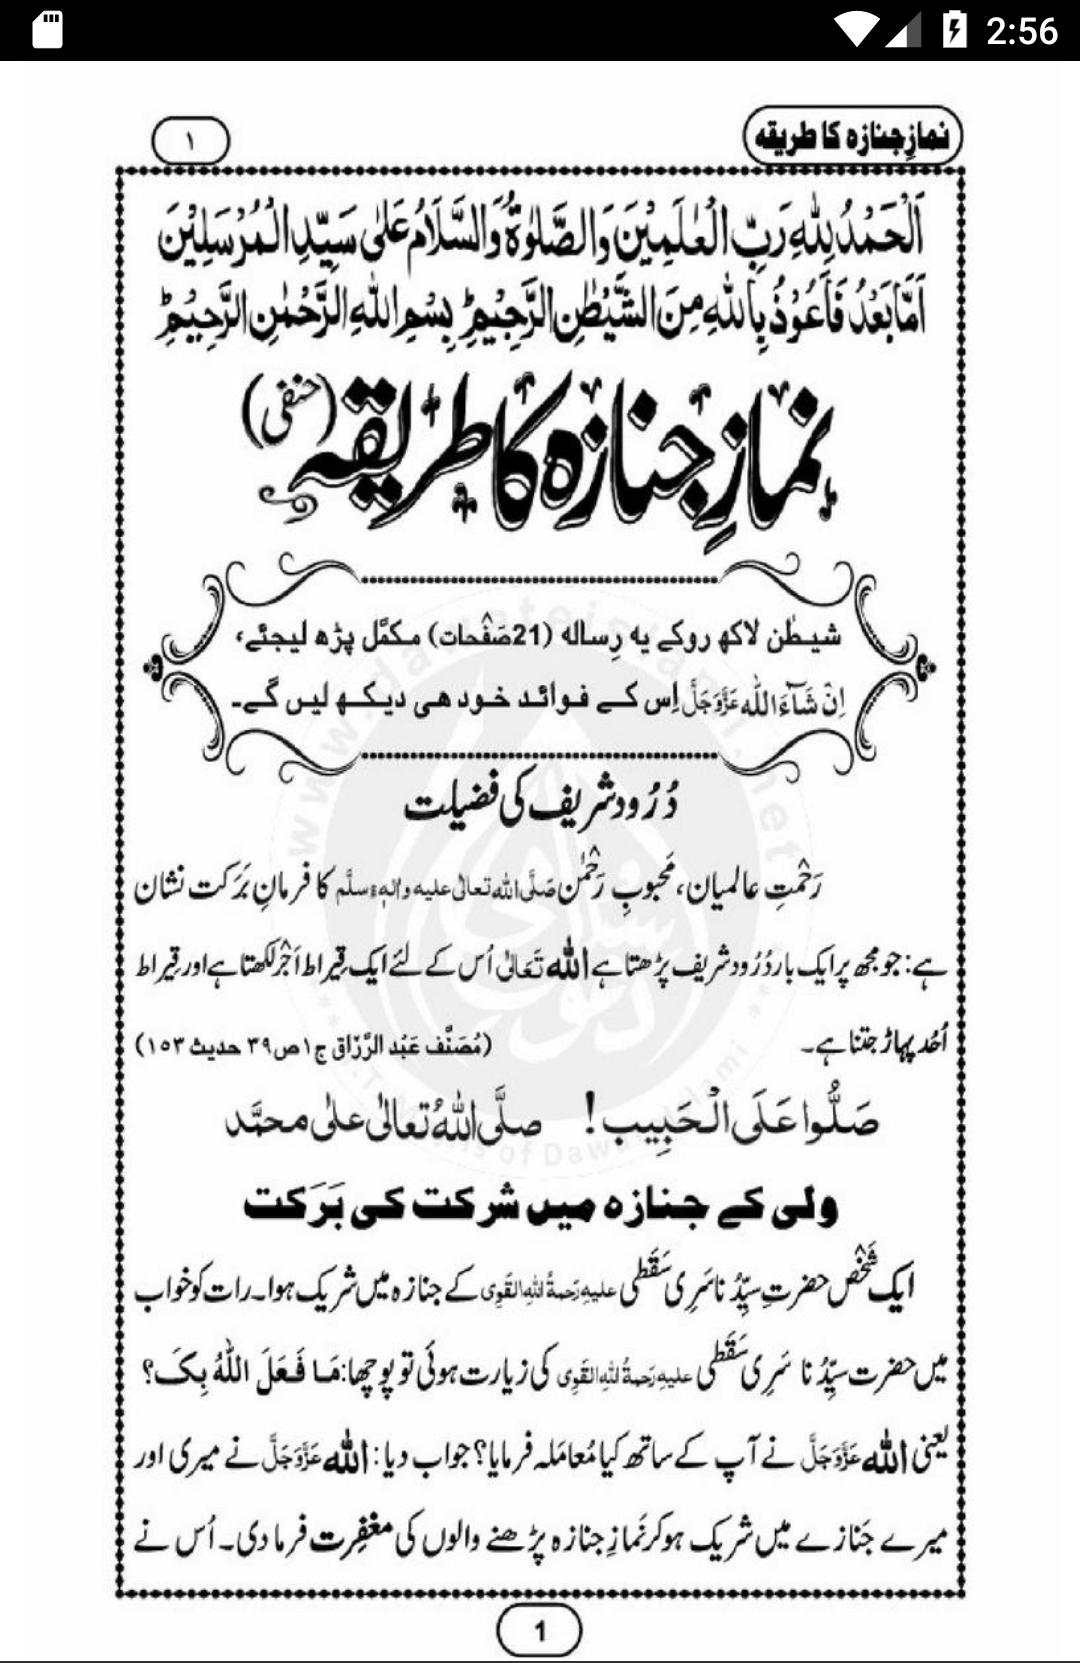 2:56
نمازِ جنازہ کا طریقہ
۱
اَلْحَمْدُ لِلّٰهِ رَبِّ الْعٰلَمِیْنَ وَالصَّلٰوةُ وَالسَّلَامُ عَلٰی سَیِّدِ الْمُرْسَلِیْنَ
اَمَّا بَعْدُ فَاَعُوْذُ بِاللّٰهِ مِنَ الشَّیْطٰنِ الرَّجِیْمِ ؕ بِسْمِ اللّٰهِ الرَّحْمٰنِ الرَّحِیْمِ ؕ
نمازِ جنازہ کا طریقہ (حنفی)
شیطٰن لاکھ روکے یہ رِسالہ (21صَفْحات) مکمَّل پڑھ لیجئے،
اِنْ شَآءَاللّٰہ عَزَّوَجَلَّ اِس کے فوائد خود ھی دیکھ لیں گے۔
دُرُود شریف کی فضیلت
رَحْمتِ عالمیان، مَحبوبِ رَحْمٰن صَلَّی اللہ تعالیٰ علیہ واٰلہٖ وسلَّم کا فرمانِ بَرَکت نشان
ہے: جو مجھ پر ایک بار دُرُود شریف پڑھتا ہے اللہ تَعَالٰی اُس کے لئے ایک قِیراط اَجْر لکھتا ہے اور قِیراط
اُحُد پہاڑ جتنا ہے۔ (مُصَنَّف عَبْد الرَّزّاق ج۱ ص۳۹ حدیث ۱۵۳)
صَلُّوا عَلَی الْحَبِیب! صلَّی اللّٰهُ تعالٰی علٰی محمَّد
ولی کے جنازہ میں شرکت کی بَرَکت
ایک شَخْص حضرتِ سیِّدُنا سَرِی سَقَطِی علیہِ رَحمۃُ اللہِ القَوِی کے جنازہ میں شریک ہوا۔ رات کو خواب
میں حضرت سیِّدُنا سَرِی سَقَطِی علیہِ رَحمۃُ اللہِ القَوِی کی زیارت ہوئی تو پوچھا: مَا فَعَلَ اللّٰهُ بِکَ؟
یعنی اللہ عَزَّوَجَلَّ نے آپ کے ساتھ کیا مُعامَلہ فرمایا؟ جواب دیا: اللہ عَزَّوَجَلَّ نے میری اور
میرے جَنازے میں شریک ہو کر نَمازِ جنازہ پڑھنے والوں کی مغفِرت فرما دی۔ اُس نے
1